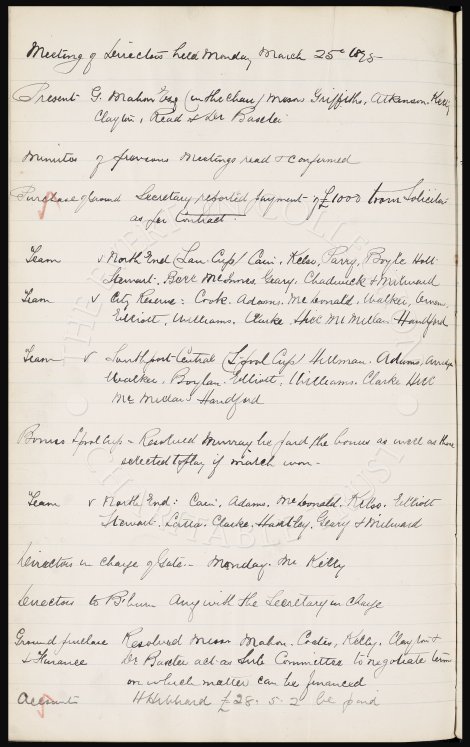 Meeting of Directors held Monday March 25th 1895
Present G. Mahon Esq (in the chair) Messrs Griffiths, Atkinson, Kelly
Clayton, Read & Dr Baxter
Minutes of previous Meetings read & confirmed
Purchase of Ground Secretary reported payment of £1000 to our Solicitor
as per Contract.
Team v North End (Lan: Cup) Cain, Kelso, Parry, Boyle Holt
Stewart, Bell McInnes Geary, Chadwick & Milward
Team v City Reserve: Cook, Adams, McDonald, Walker, Arridge
Elliott, Williams, Clarke Hill McMillan Handford
Team v Southport Central (L'pool Cup) Hillman, Adams, Arridge
Walker, Boylan, Elliott, Williams, Clarke Hill
McMillan Handford
Bonus L'pool Cup - Resolved Murray be paid the bonus as well as those
selected to play if match won -
Team v North End: Cain, Adams, McDonald, Kelso, Elliott
Stewart, Latta, Clarke, Hartley, Geary & Milward
Directors in charge of Gate - Monday Mr Kelly
Directors to B'burn Any with the Secretary in charge
Ground purchase Resolved Messrs Mahon, Coates, Kelly, Clayton &
& Finance Dr Baxter act as Sub Committee to negotiate terms
on which matter can be financed
Accounts H Hibbard £28. 5. 2 be paid